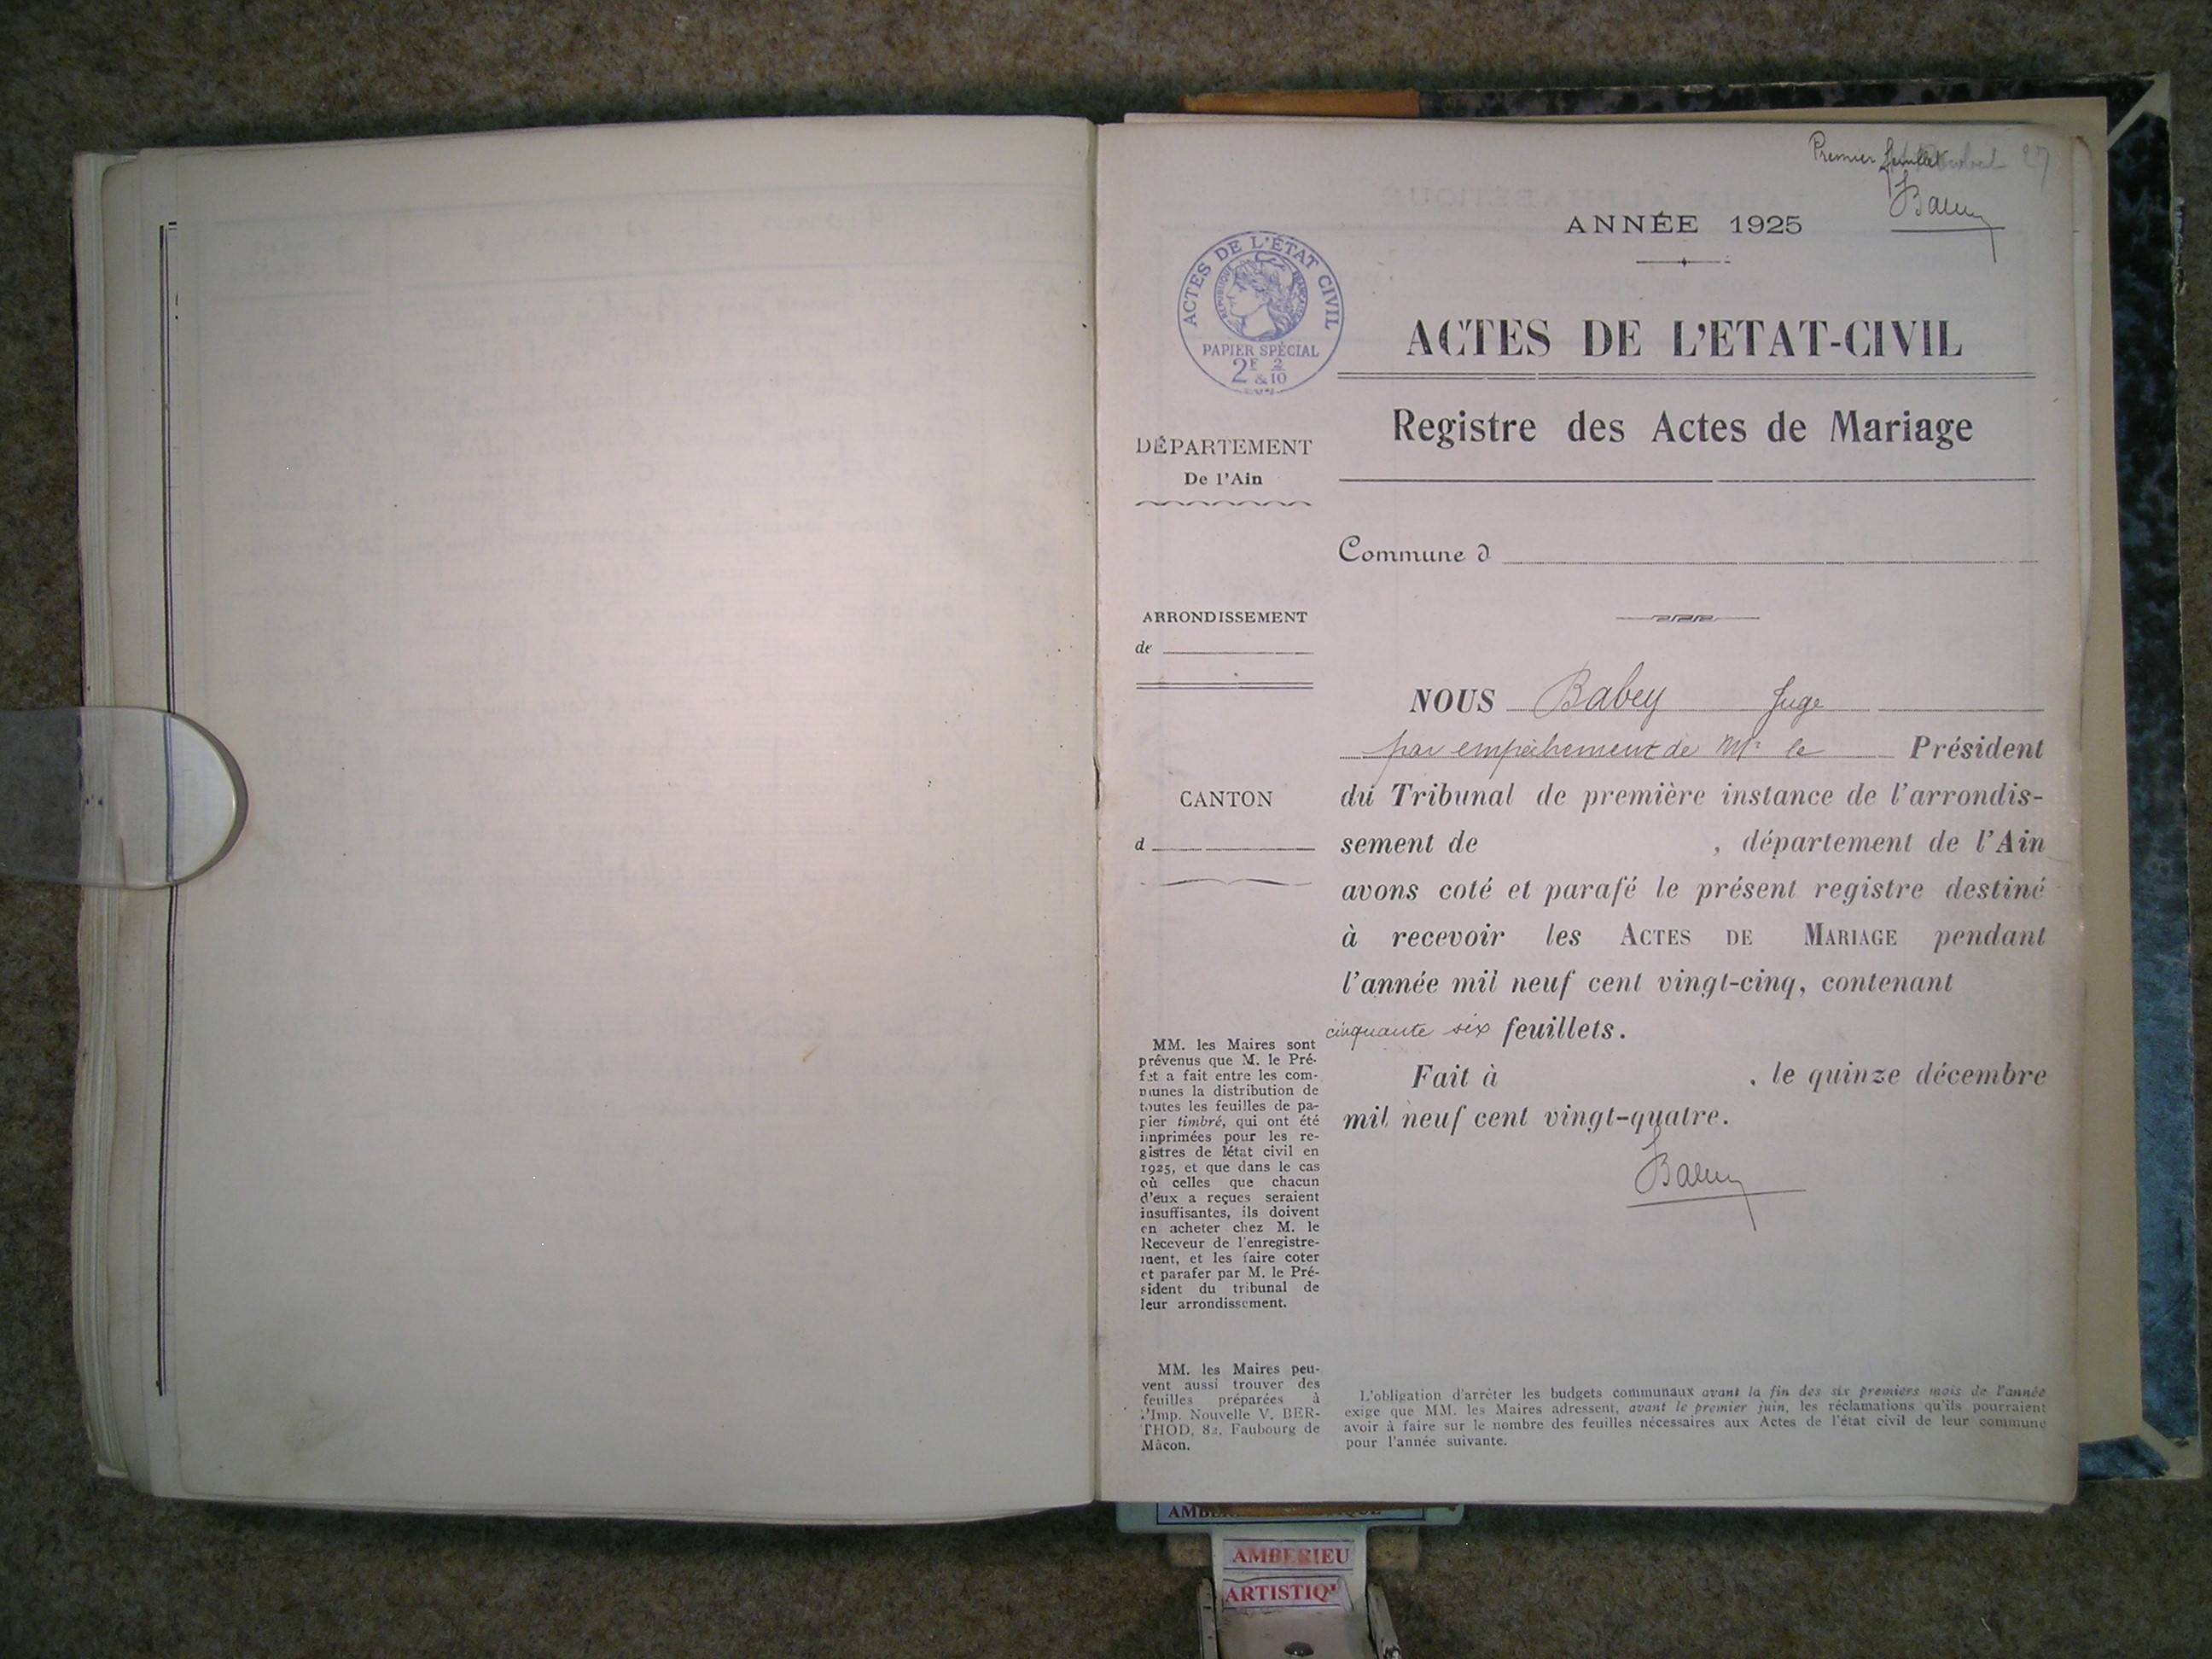 Premier feuillet
Babey
ANNÉE 1925
ACTES DE L'ÉTAT CIVIL
RÉPUBLIQUE FRANÇAISE
PAPIER SPÉCIAL
2F & 2/10
ACTES DE L'ETAT-CIVIL
Registre des Actes de Mariage
DÉPARTEMENT
De l'Ain
Commune d
ARRONDISSEMENT
de
CANTON
d
NOUS Babey Juge
par empêchement de Mr le Président
du Tribunal de première instance de l'arrondis-
sement de , département de l'Ain
avons coté et parafé le présent registre destiné
à recevoir les ACTES DE MARIAGE pendant
l'année mil neuf cent vingt-cinq, contenant
cinquante six feuillets.
Fait à , le quinze décembre
mil neuf cent vingt-quatre.
Babey
MM. les Maires sont
prévenus que M. le Pré-
fet a fait entre les com-
munes la distribution de
toutes les feuilles de pa-
pier timbré, qui ont été
imprimées pour les re-
gistres de létat civil en
1925, et que dans le cas
où celles que chacun
d'eux a reçues seraient
insuffisantes, ils doivent
en acheter chez M. le
Receveur de l'enregistre-
ment, et les faire coter
et parafer par M. le Pré-
sident du tribunal de
leur arrondissement.
MM. les Maires peu-
vent aussi trouver des
feuilles préparées à
l'Imp. Nouvelle V. BER-
THOD, 82, Faubourg de
Mâcon.
L'obligation d'arrêter les budgets communaux avant la fin des six premiers mois de l'année
exige que MM. les Maires adressent, avant le premier juin, les réclamations qu'ils pourraient
avoir à faire sur le nombre des feuilles nécessaires aux Actes de l'état civil de leur commune
pour l'année suivante.
AMBERIEU
ARTISTIQ